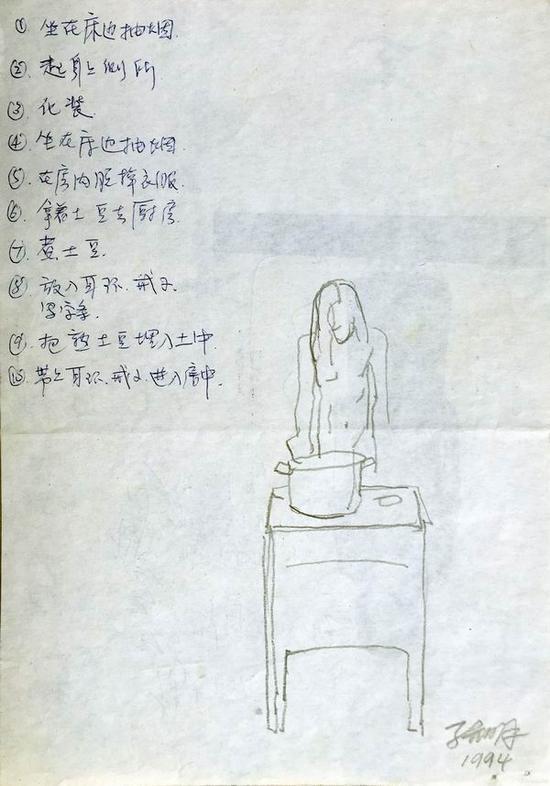 ① 坐在床边抽烟.
② 起身上侧所
③ 化装.
④ 坐在床边抽烟.
⑤ 在房内脱掉衣服.
⑥ 拿着土豆去厨房.
⑦ 煮土豆.
⑧ 放入耳环.戒子.
写字条.
⑨ 把熟土豆埋入土中.
⑩ 带上耳环.戒子.进入房中.
1994